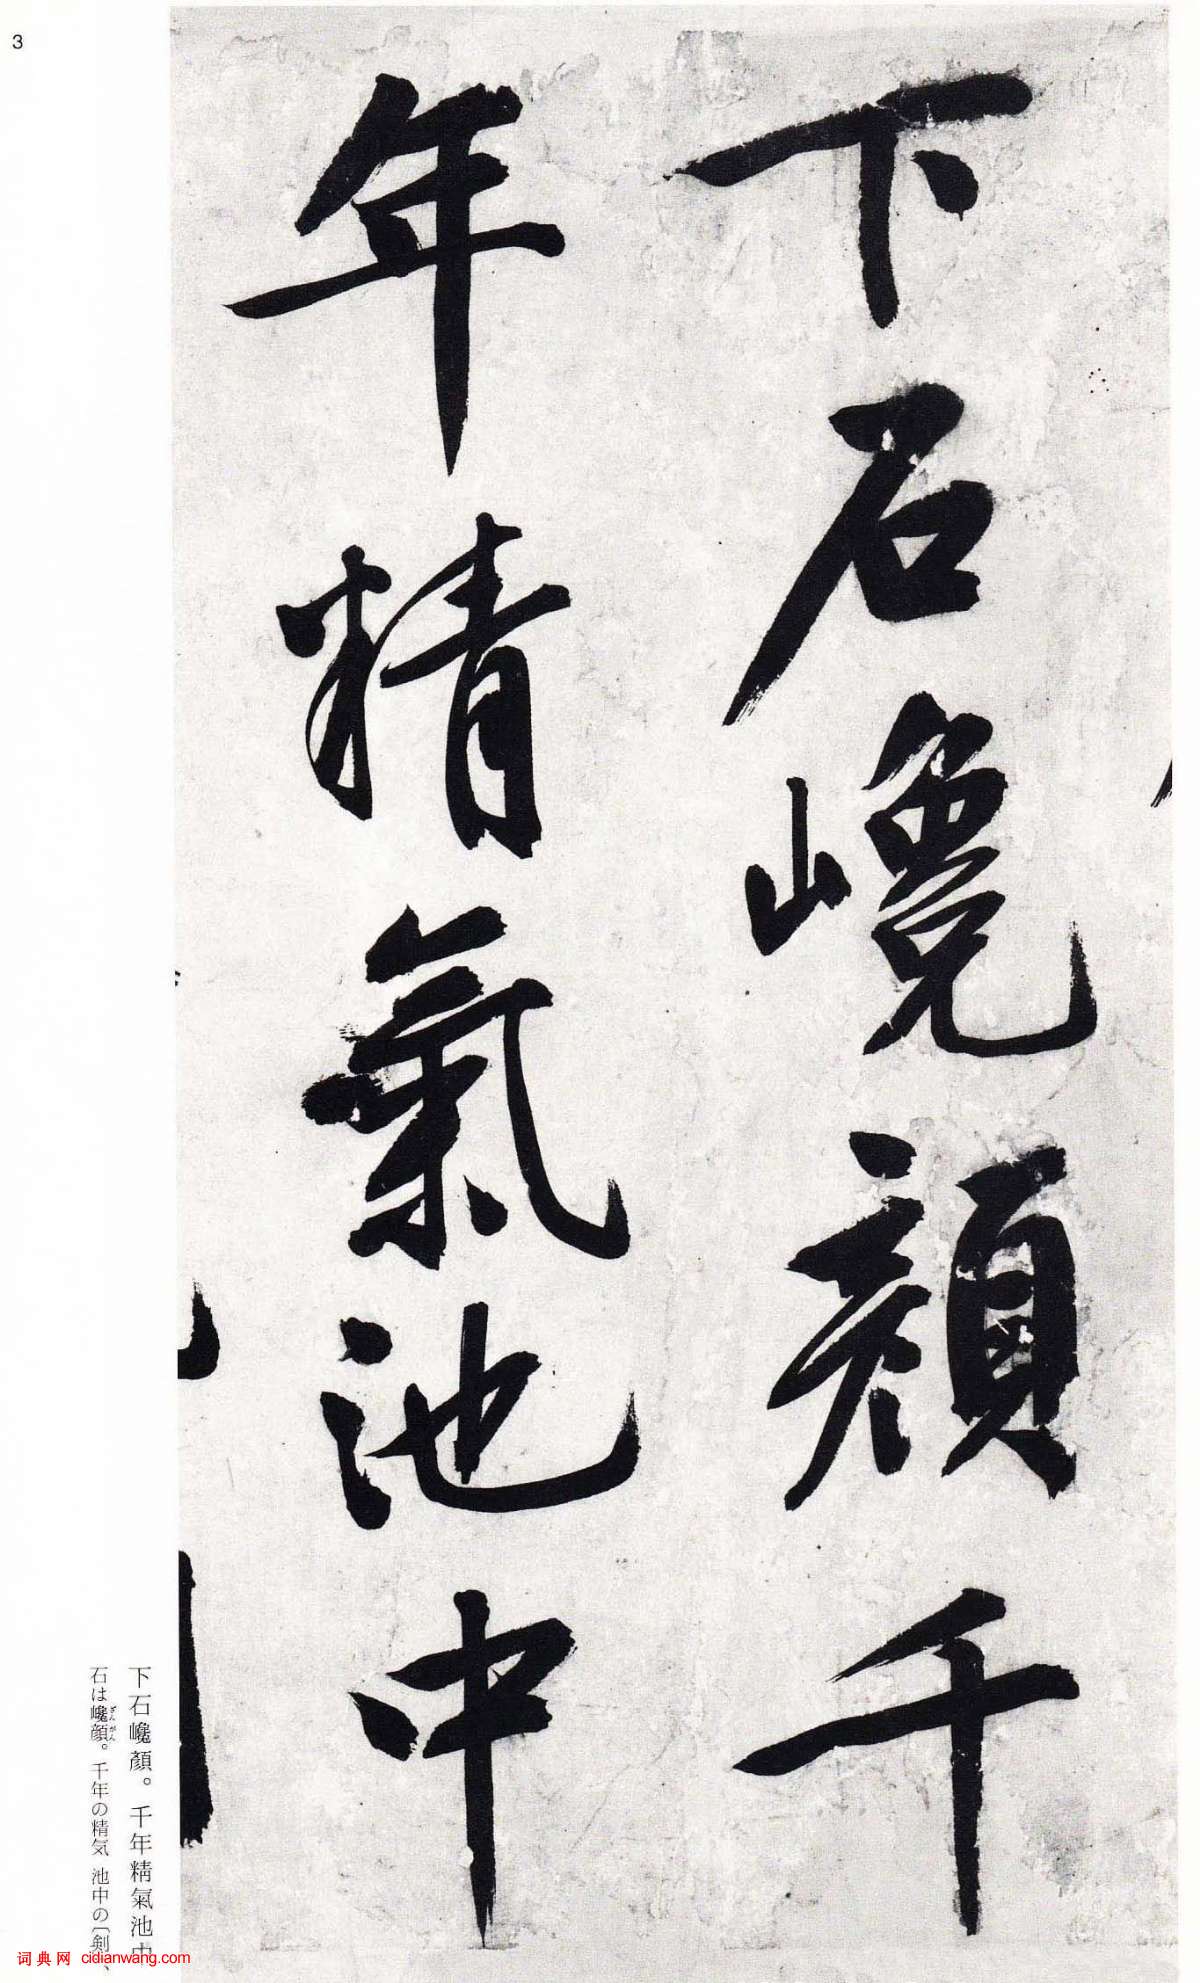 3
下石巉顔千
年精氣池中
下石巉顏。千年精氣池中
石は巉顔。千年の精気 池中の〔剣、
ざんがん
词典网 cidianwang.com